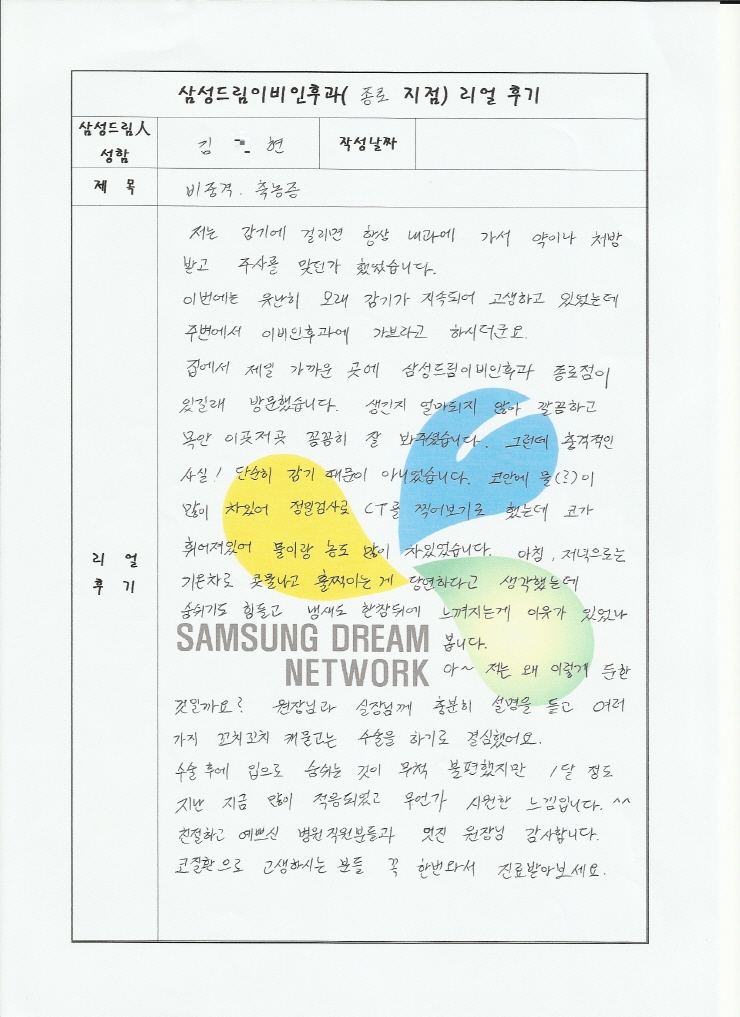 삼성드림이비인후과( 종로 지점) 리얼 후기
삼성드림人
성함
김 현
작성날짜
제 목
비중격. 축농증
리 얼
후 기
저는 감기에 걸리면 항상 내과에 가서 약이나 처방
받고 주사를 맞던가 했었습니다.
이번에는 유난히 오래 감기가 지속되어 고생하고 있었는데
주변에서 이비인후과에 가보라고 하시더군요.
집에서 제일 가까운 곳에 삼성드림이비인후과 종로점이
있길래 방문했습니다. 생긴지 얼마되지 않아 깔끔하고
목안 이곳저곳 꼼꼼히 잘 봐주셨습니다. 그런데 충격적인
사실! 단순히 감기 때문이 아니었습니다. 코안에 물(?)이
많이 차있어 정밀검사로 CT를 찍어보기로 했는데 코가
휘어져있어 물이랑 농도 많이 차있었습니다. 아침, 저녁으로는
기온차로 콧물나고 훌쩍이는 게 당연하다고 생각했는데
숨쉬기도 힘들고 냄새도 한참뒤에 느껴지는게 이유가 있었나
봅니다.
SAMSUNG DREAM
NETWORK
아~ 저는 왜 이렇게 둔한
것일까요? 원장님과 실장님께 충분히 설명을 듣고 여러
가지 꼬치꼬치 캐물고는 수술을 하기로 결심했어요.
수술 후에 입으로 숨쉬는 것이 무척 불편했지만 1달 정도
지난 지금 많이 적응되었고 무언가 시원한 느낌입니다. ^^
친절하고 예쁘신 병원직원분들과 멋진 원장님 감사합니다.
코질환으로 고생하시는 분들 꼭 한번와서 진료받아보세요.